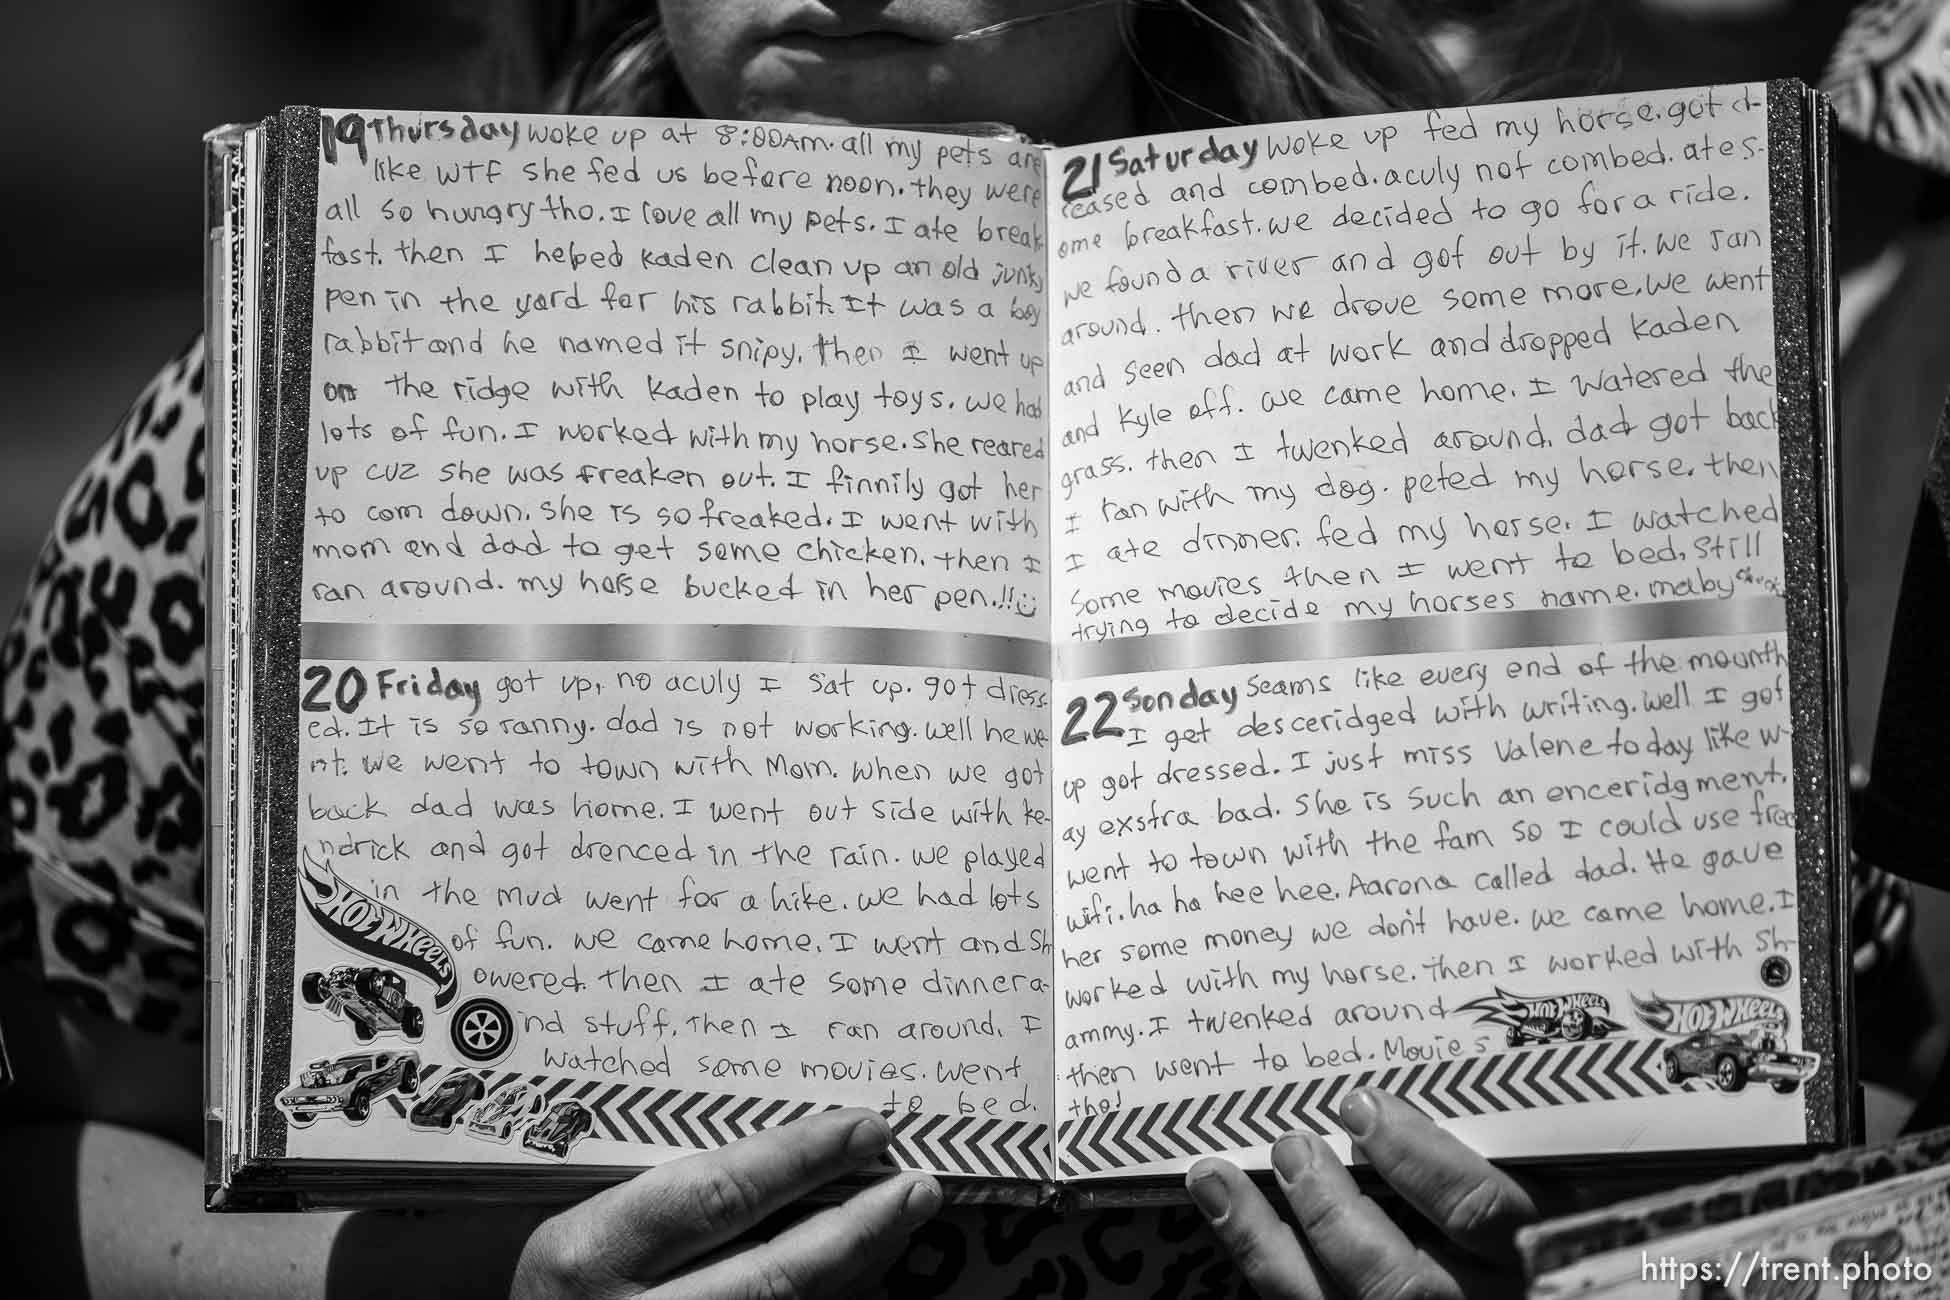 19 Thursday woke up at 8:00AM. all my pets are
like WTF she fed us before noon. they were
all so hungry tho. I love all my pets. I ate break
fast. then I helped kaden clean up an old junky
pen in the yard for his rabbit. It was a boy
rabbit and he named it snipy. then I went up
on the ridge with kaden to play toys. we had
lots of fun. I worked with my horse. she reared
up cuz she was freaken out. I finnily got her
to com down. she is so freaked. I went with
mom and dad to get some chicken. then I
ran around. my horse bucked in her pen.!!
20 Friday got up, no aculy I sat up. got dress-
ed. It is so ranny. dad is not working. well he we-
nt. we went to town with Mom. when we got
back dad was home. I went out side with ke-
ndrick and got drenced in the rain. we played
in the mud went for a hike. we had lots
of fun. we came home. I went and sh
owered. then I ate some dinner a-
nd stuff. then I ran around. I
watched some movies. went
to bed.
HOT WHEELS
21 Saturday woke up fed my horse. got d-
reased and combed. aculy not combed. ate s-
ome breakfast. we decided to go for a ride.
we found a river and got out by it. we ran
around. then we drove some more. we went
and seen dad at work and dropped kaden
and kyle off. we came home. I watered the
grass. then I twenked around. dad got back
I ran with my dog. peted my horse. then
I ate dinner. fed my horse. I watched
some movies then I went to bed. still
trying to decide my horses name. maby
22 Sonday seams like every end of the mounth
I get desceridged with writing. well I got
up got dressed. I just miss Valene today like w-
ay exstra bad. she is such an enceridgment.
went to town with the fam so I could use free
wifi. ha ha hee hee. Aarona called dad. He gave
her some money we don't have. we came home. I
worked with my horse. then I worked with sh-
ammy. I twenked around
then went to bed. Movies
tho!
HOT WHEELS
HOT WHEELS
https://trent.photo